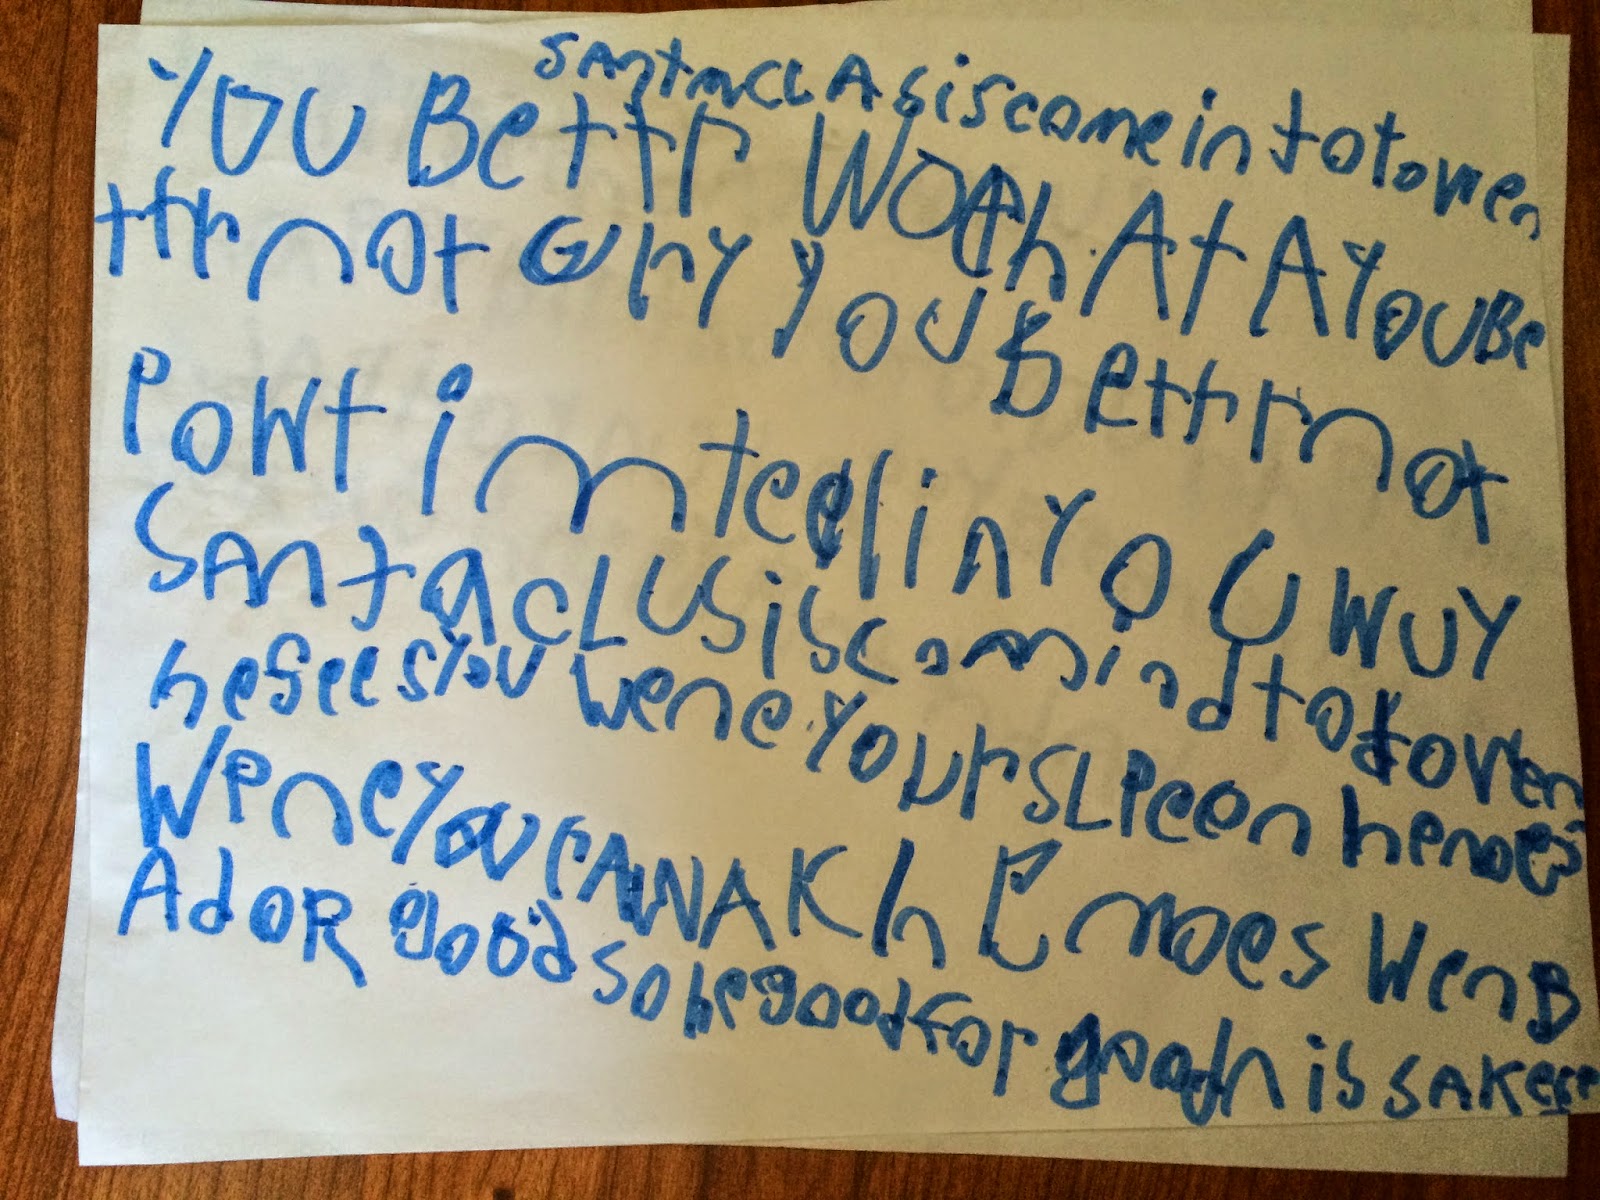 SAntaCLAS is come in to towen
YOU Bettr WOtch At A YOU Be
ttr not Cry YOU Bettr not
POWt im teelin YOU WUY
SAnta CLUS is comind to towen
he Sees You wene Your SLPeen he noes
Wene You r AWAK hE noes Wen B
Ad OR good So be good for goodn is SAKe